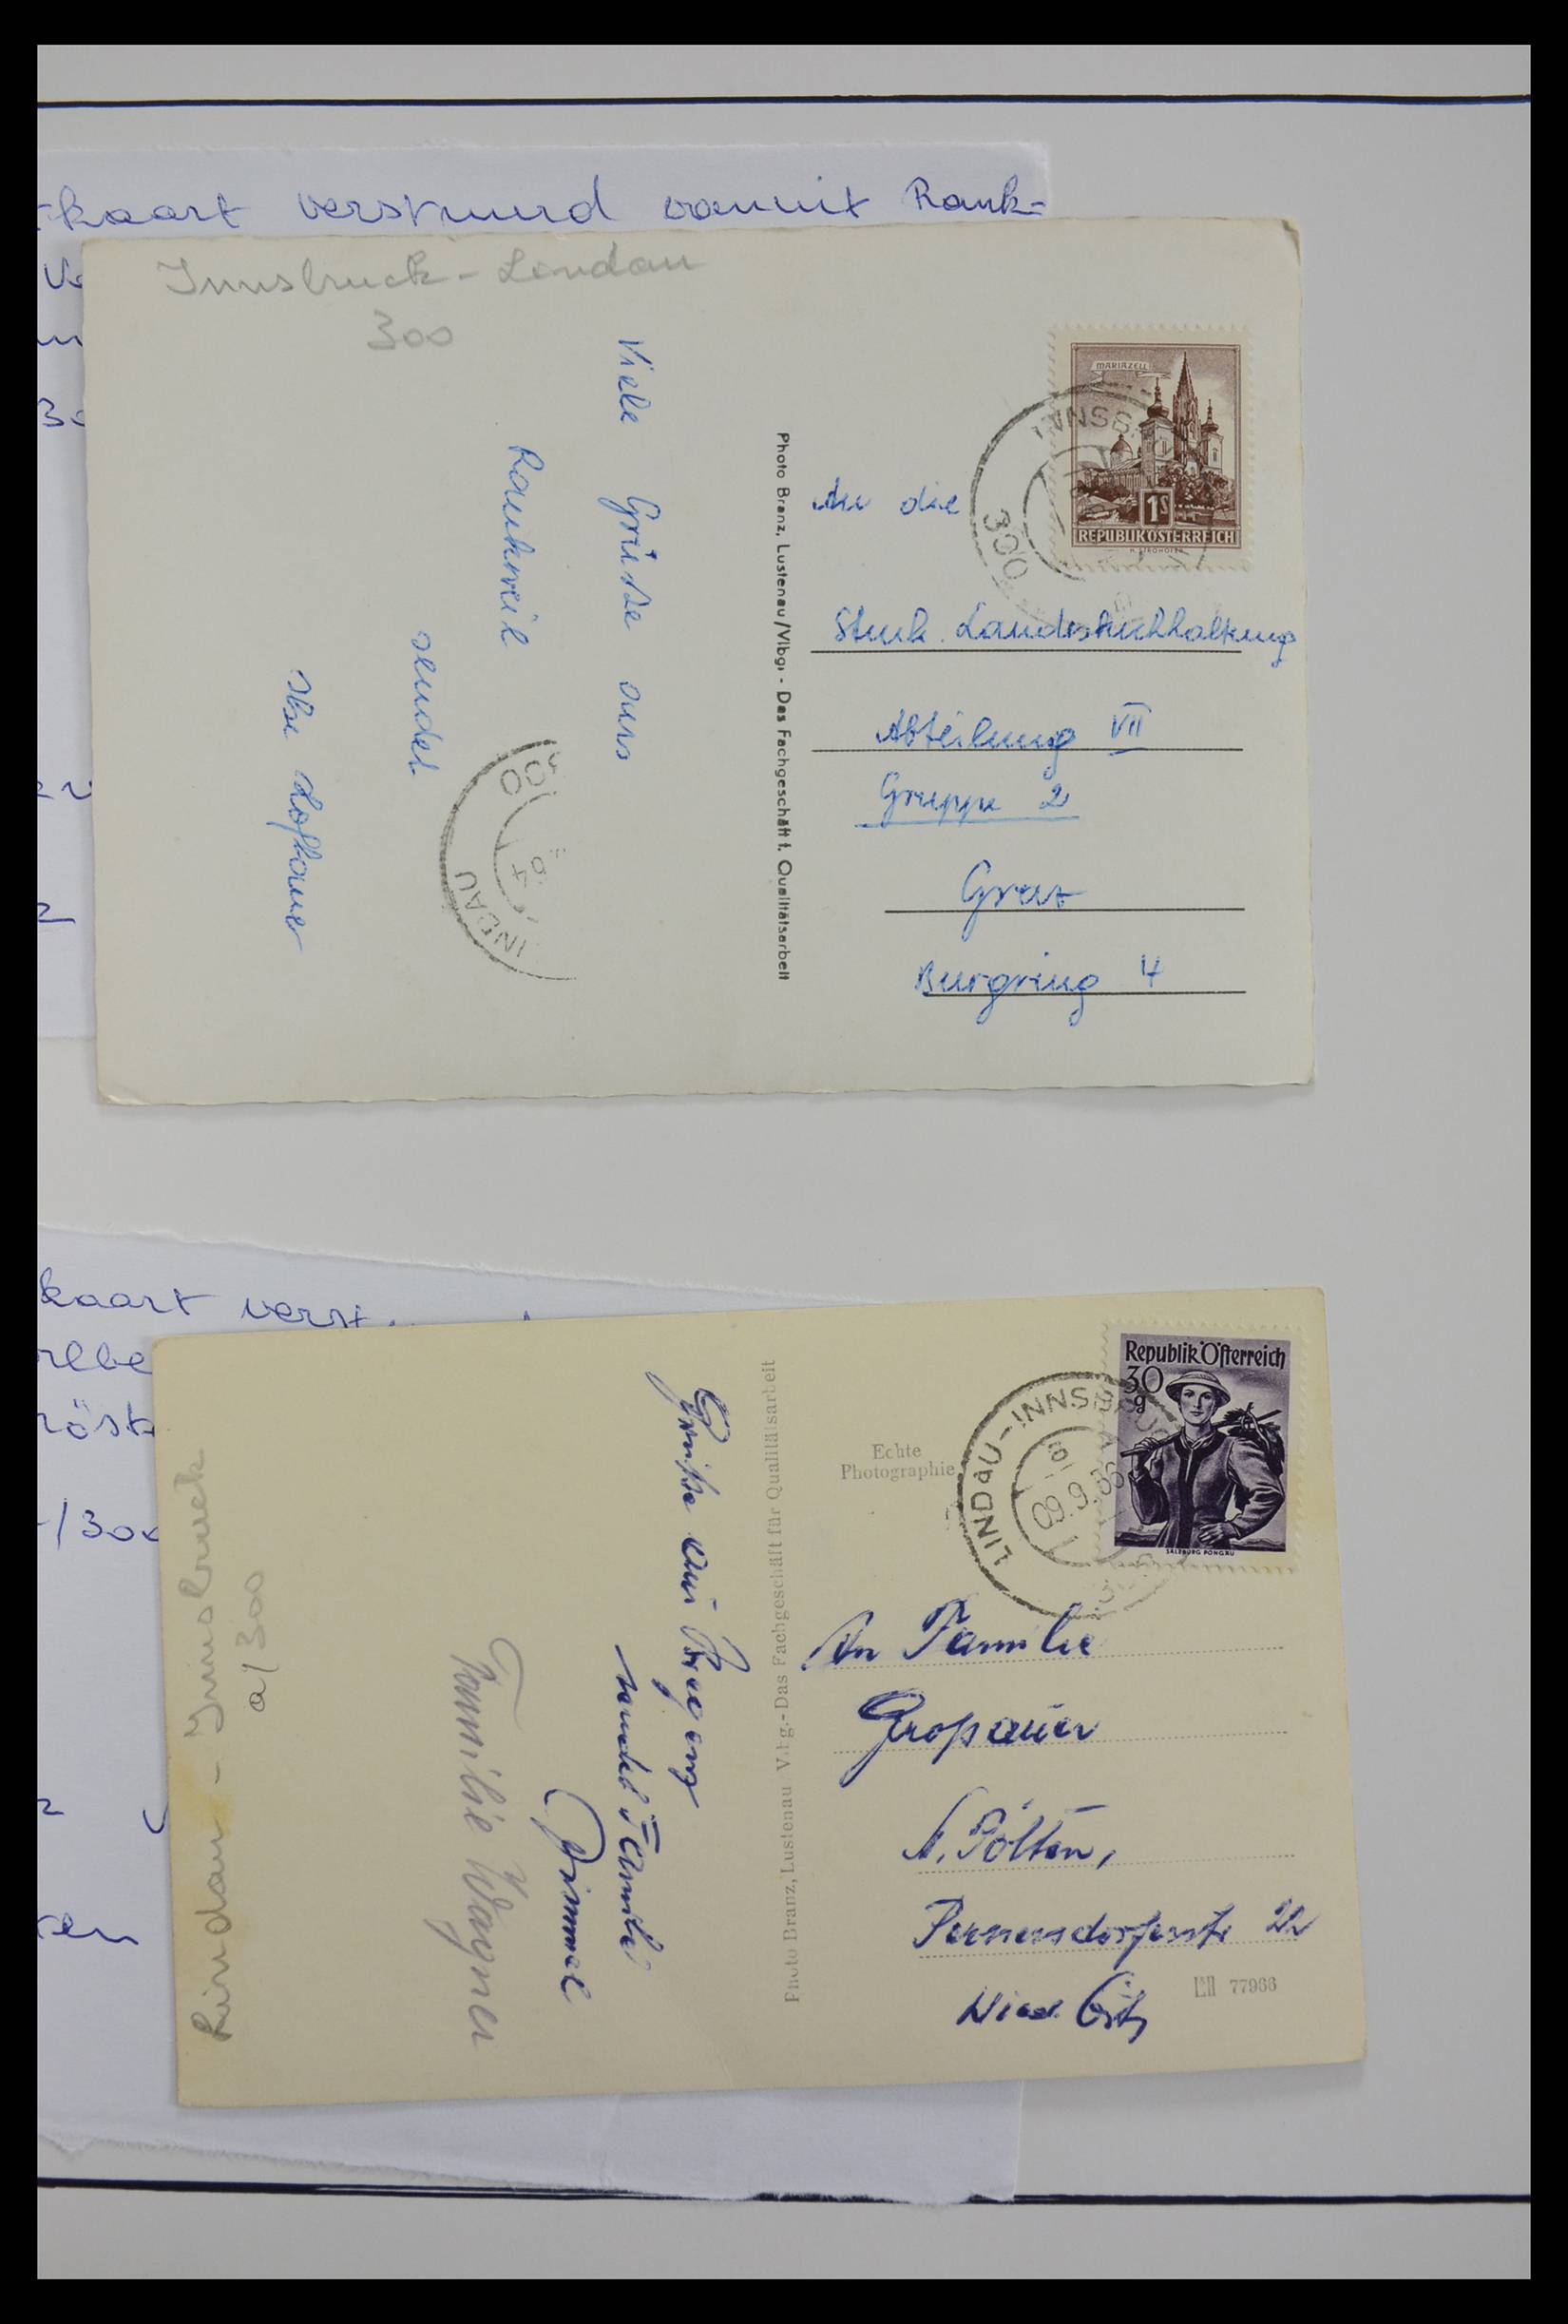 -kaart verstuurd vanuit Rank-
Innsbruck - Lindau
300
Viele Grüße aus
Rankweil
sendet
Photo Branz, Lustenau/Vlbg. - Das Fachgeschäft f. Qualitätsarbeit
MARIAZELL
1S
REPUBLIK ÖSTERREICH
INNSB
300
An die
Landesbuchhaltung
Abteilung VII
Gruppe 2
Graz
Burgring 4
INDAU
300
kaart verst
/300
Lindau - Innsbruck
a/300
Grüße aus Bregenz
sendet Familie
Familie Wagner
Photo Branz, Lustenau Vlbg.-Das Fachgeschäft für Qualitätsarbeit
Echte
Photographie
Republik Österreich
30
g
SALZBURG PONGAU
LINDAU-INNSBRUC
An Familie
Großauer
St. Pölten,
77966